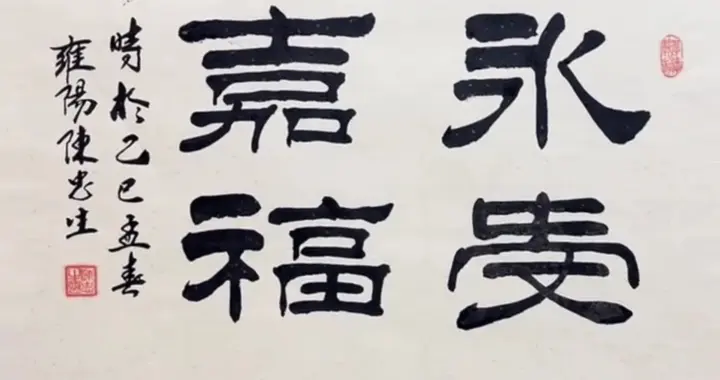 永受
嘉福
時於乙巳孟春
雍陽陳忠生